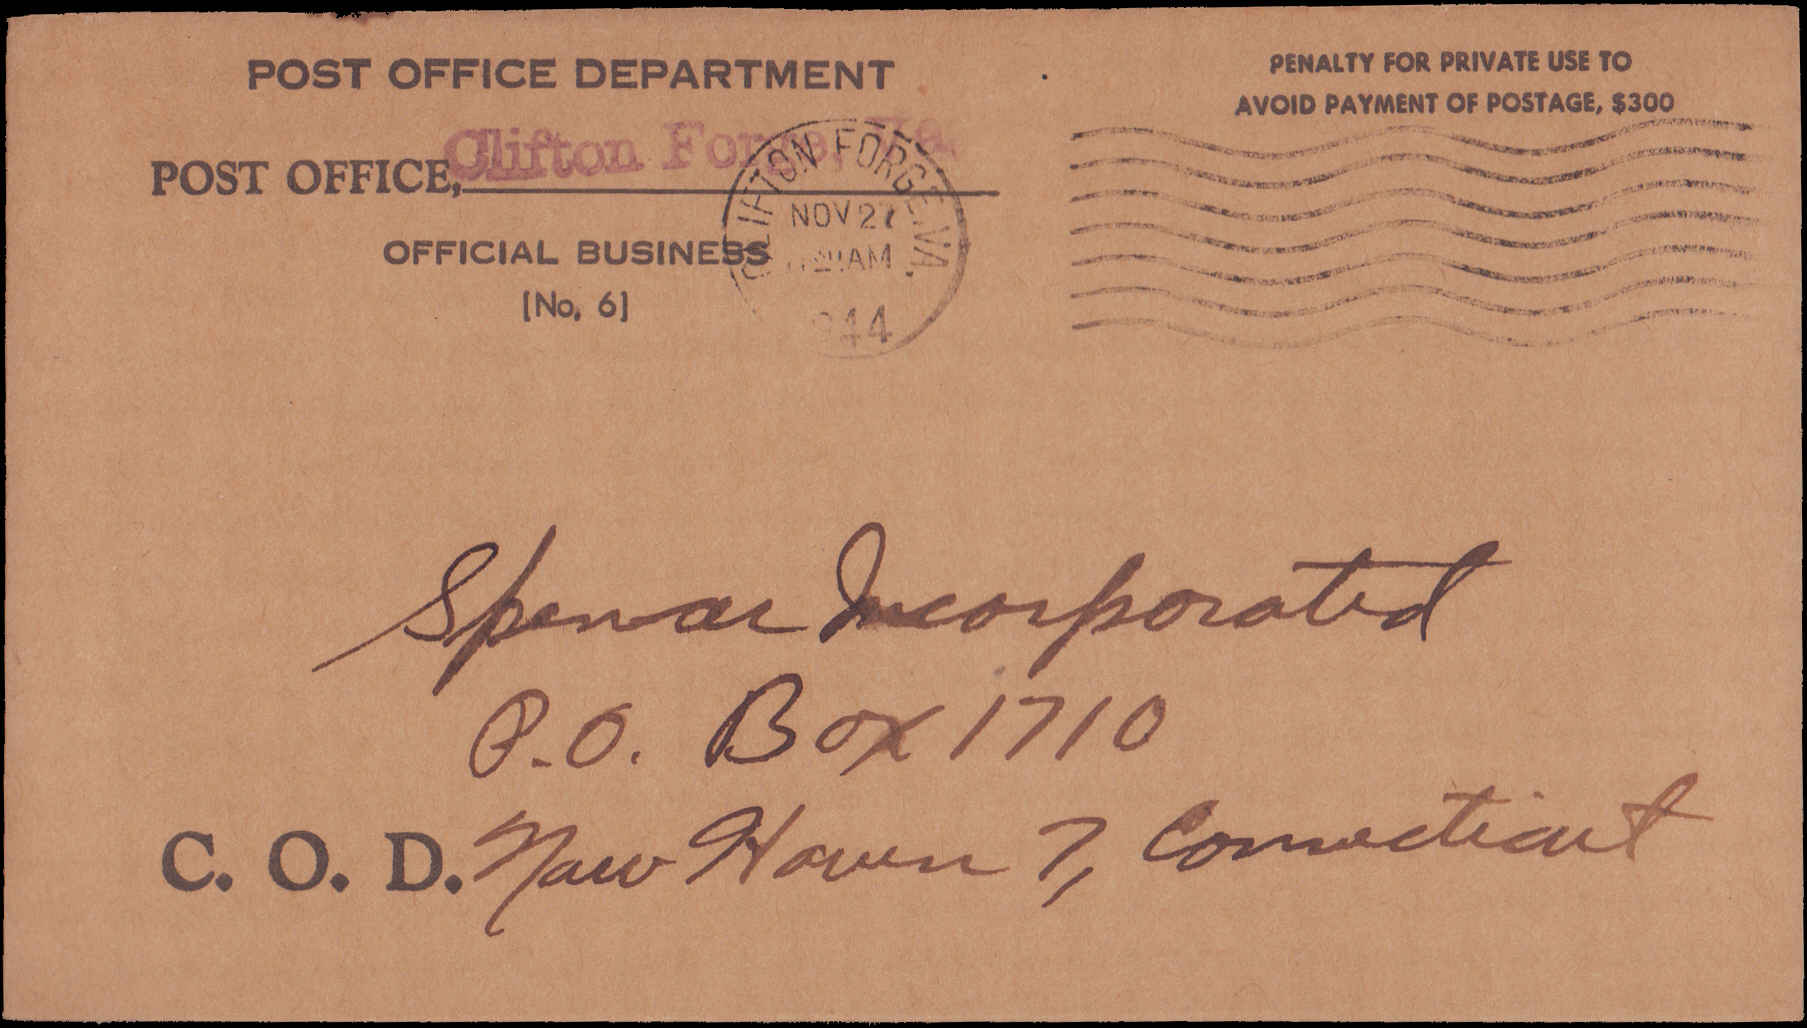 POST OFFICE DEPARTMENT
PENALTY FOR PRIVATE USE TO
AVOID PAYMENT OF POSTAGE, $300
POST OFFICE, Clifton Forge, Va.
CLIFTON FORGE, VA.
NOV 27
AM
1944
OFFICIAL BUSINESS
[No. 6]
Spencer Incorporated
P.O. Box 1710
C. O. D. New Haven 7, Connecticut